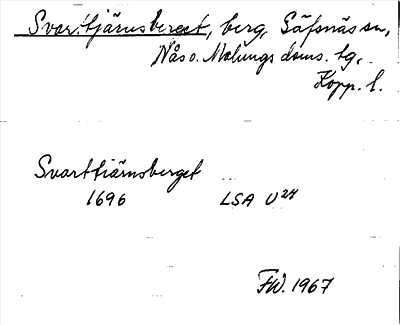 Svarttjärnsberget, berg, Säfsnäs sn,
Nås o. Malungs doms. tg,
Kopp. l.
Svarttiärnsberget
1696 LSA U24
FW. 1967